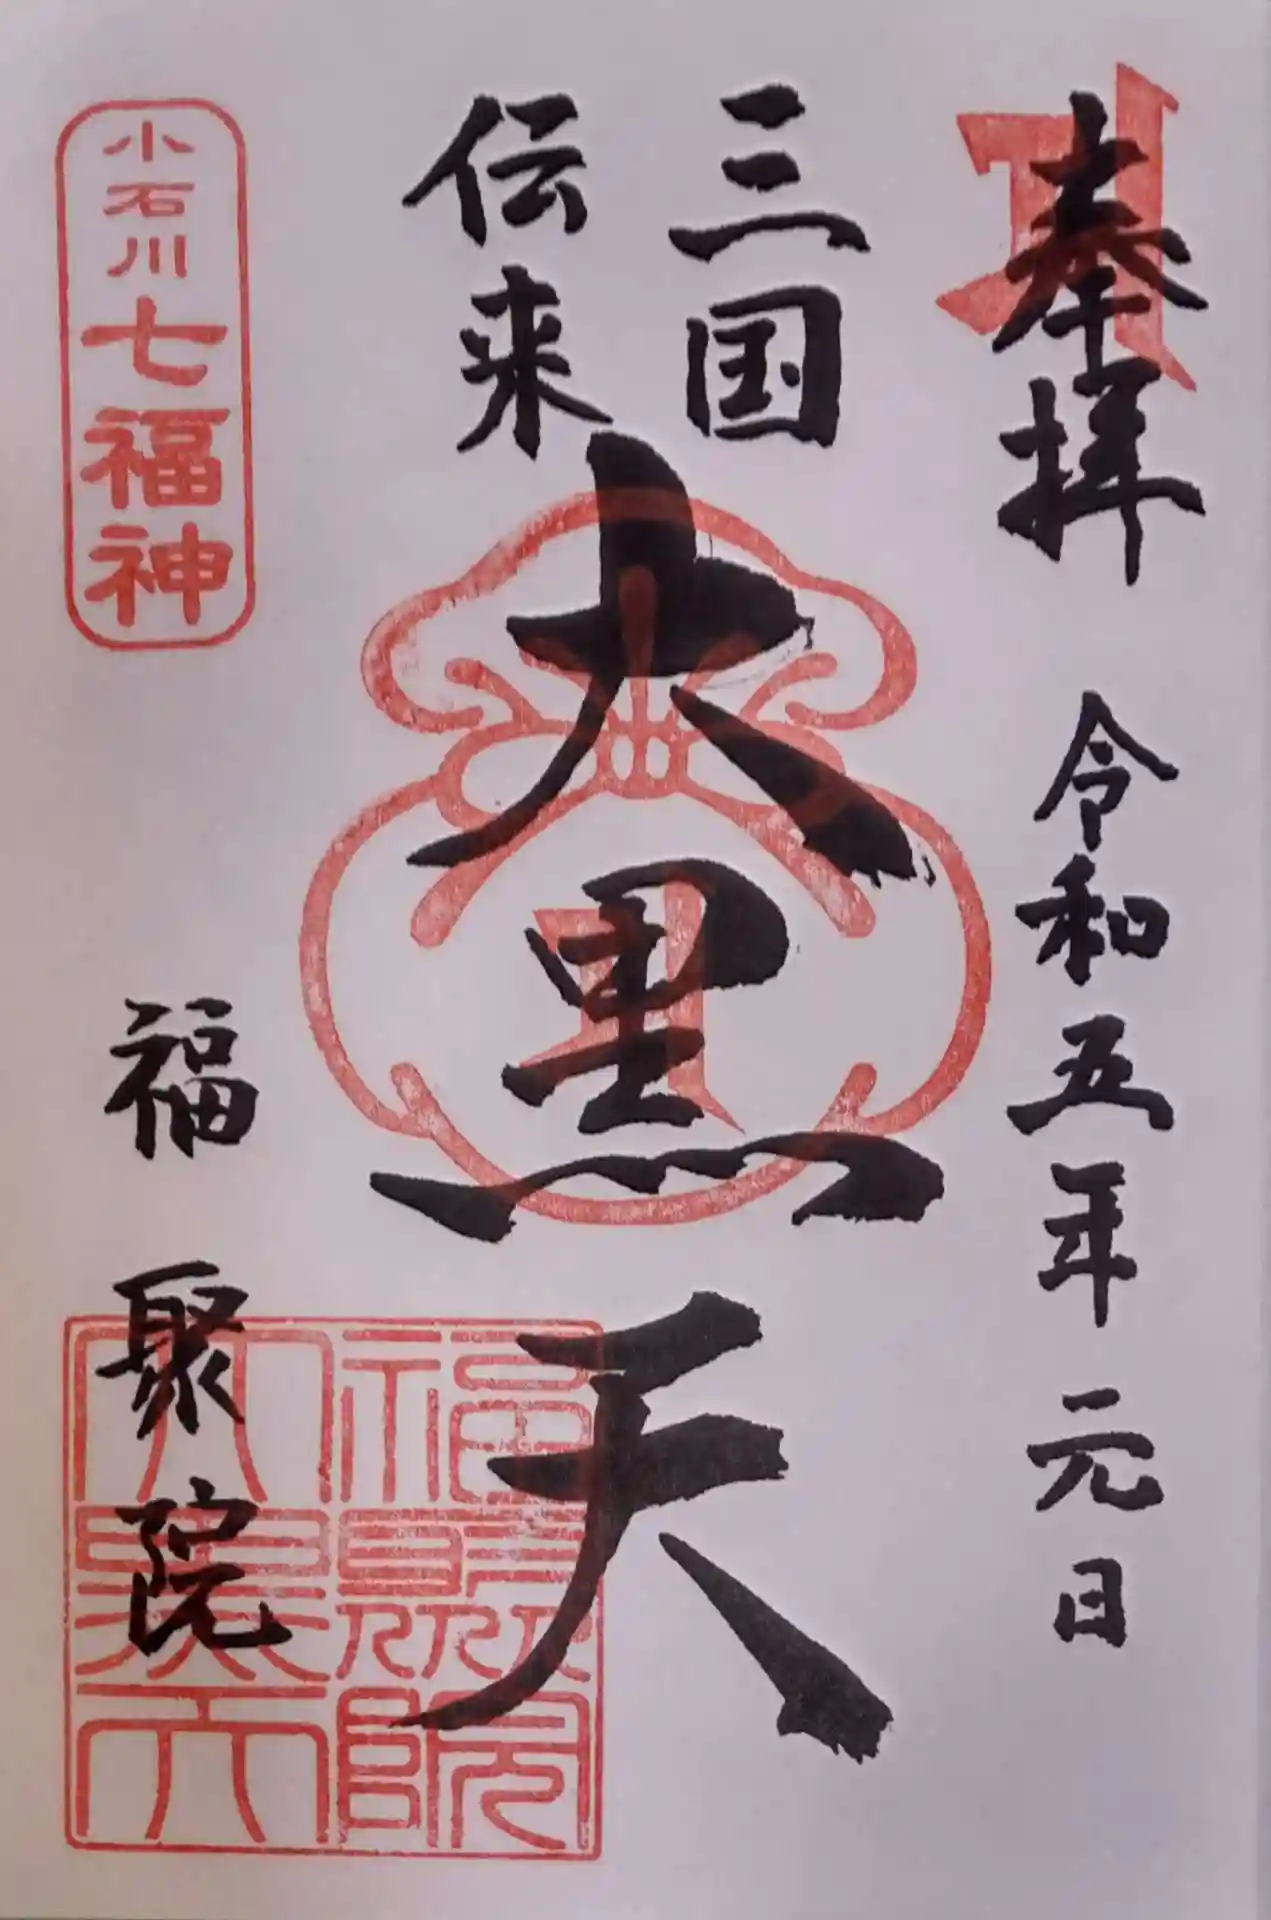 奉拝 令和五年元日
三国
伝来
大黒天
小石川七福神
福聚院
福聚院
大黒天